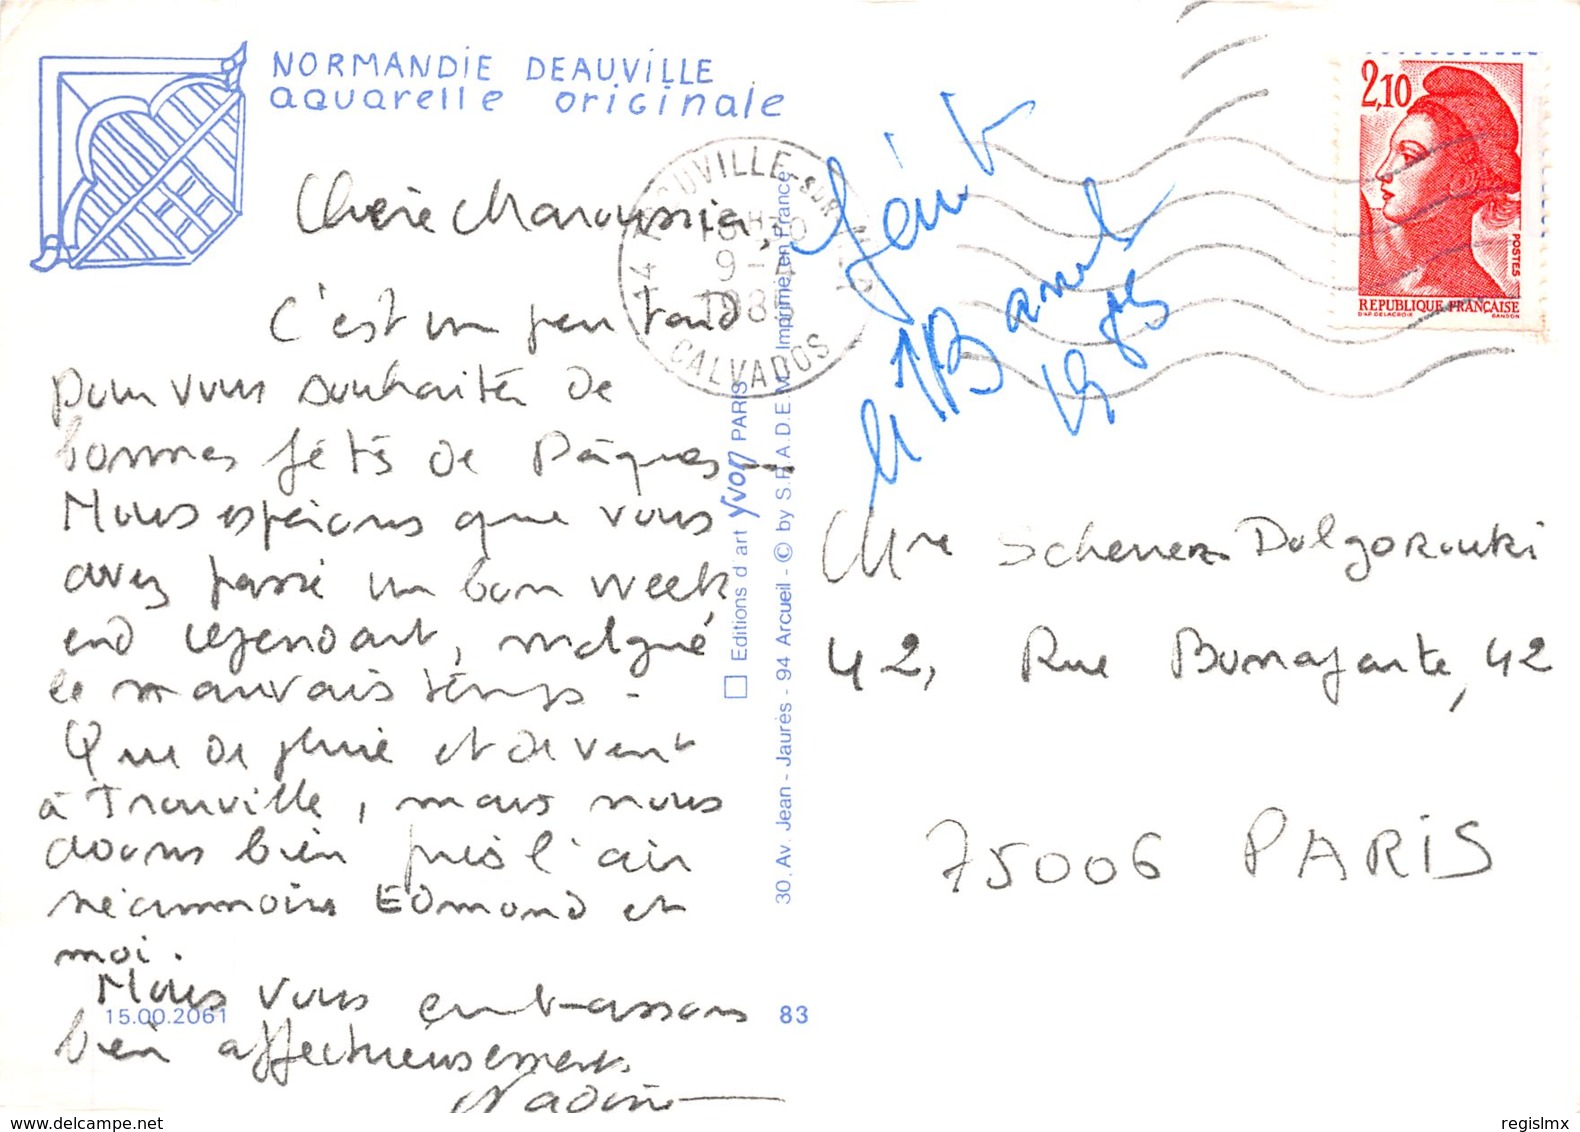 NORMANDIE DEAUVILLE
aquarelle originale
Chère Maroussia,
C'est un peu tard
pour vous souhaiter de
bonnes fêtes de Pâques
Nous espérons que vous
avez passé un bon week
end cependant, malgré
le mauvais temps -
Que de pluie et de vent
à Trouville, mais nous
avons bien pris l'air
néanmoins Edmond et
moi.
Nous vous embrassons
bien affectueusement
Nadine
15.00.2061
83
□ Editions d'art yvon PARIS
30, Av. Jean-Jaurès - 94 Arcueil - © by S.P.A.D.E.M. Imprimé en France
14 TROUVILLE-SUR-MER
9-4
CALVADOS
écrit
le
2,10
POSTES
REPUBLIQUE FRANÇAISE
D'AP. DELACROIX GANDON
Mme Scherrer Dolgorouki
42, Rue Bonaparte, 42
75006 PARIS
delcampe.net
regislmx